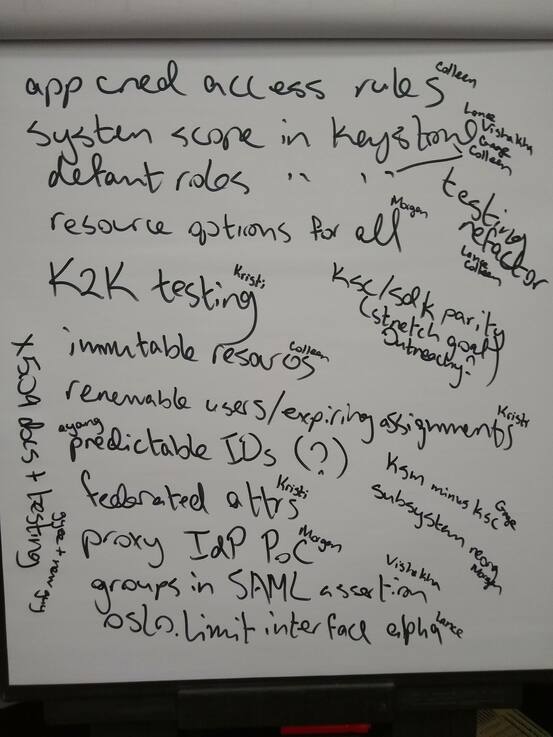 app cred access rules Colleen
system scope in keystone Lance Vishakha Gage Colleen
default roles " "
testing refactor Lance Colleen
resource options for all Morgan
K2K testing Kristi
ksc/sdk parity
(stretch goal)
Outreachy?
immutable resources Colleen
renewable users/expiring assignments Kristi
ayoung predictable IDs (?)
federated attrs Kristi
ksm minus ksc Gage
subsystem reorg Morgan
proxy IdP PoC Morgan
groups in SAML assertion Vishakha
oslo.limit interface alpha Lance
x509 docs + testing
+ new guy